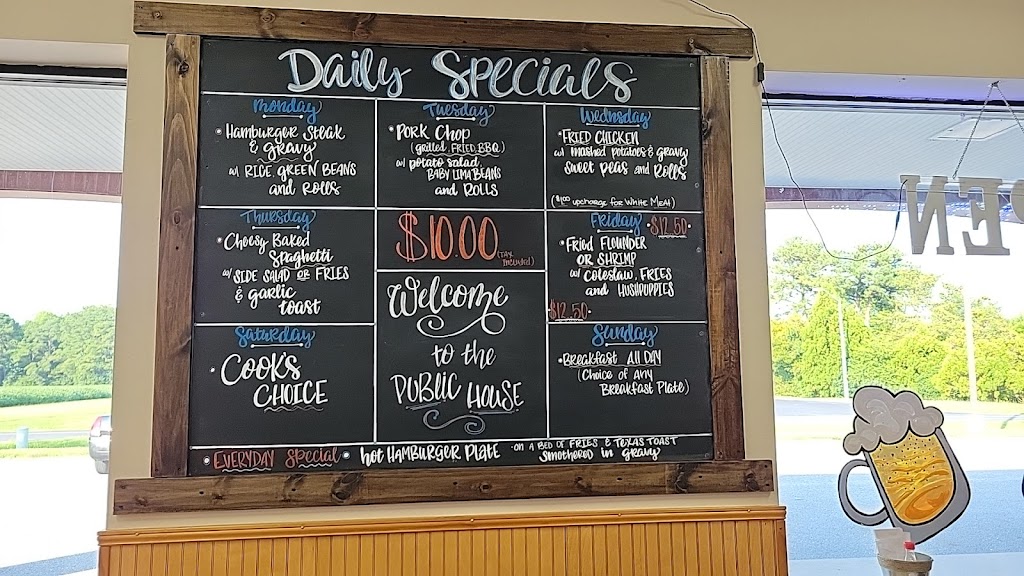 Daily Specials
Monday
• Hamburger Steak
& gravy
w/ RICE GREEN BEANS
and Rolls
Tuesday
• PORK CHOP
(grilled, FRIED, BBQ)
w/ potato salad,
BABY LIMA BEANS
and ROLLS
Wednesday
• FRIED CHICKEN
w/ mashed potatoes & gravy
sweet peas and Rolls
($1.00 upcharge for WHITE MEAT)
Thursday
• Cheesy Baked
Spaghetti
w/ SIDE SALAD OR FRIES
& garlic
toast
$10.00 (TAX
included)
Friday • $12.50 •
• Fried FLOUNDER
OR SHRIMP
w/ coleslaw, FRIES
and HUSHPUPPIES
$12.50 •
Saturday
• COOKS
CHOICE
Welcome
to the
PUBLIC HOUSE
Sunday
• Breakfast All DAY
(Choice of Any
Breakfast Plate)
• EVERYDAY Special • hot HAMBURGER PLATE • ON A BED OF FRIES & TEXAS TOAST
smothered in gravy
OPEN